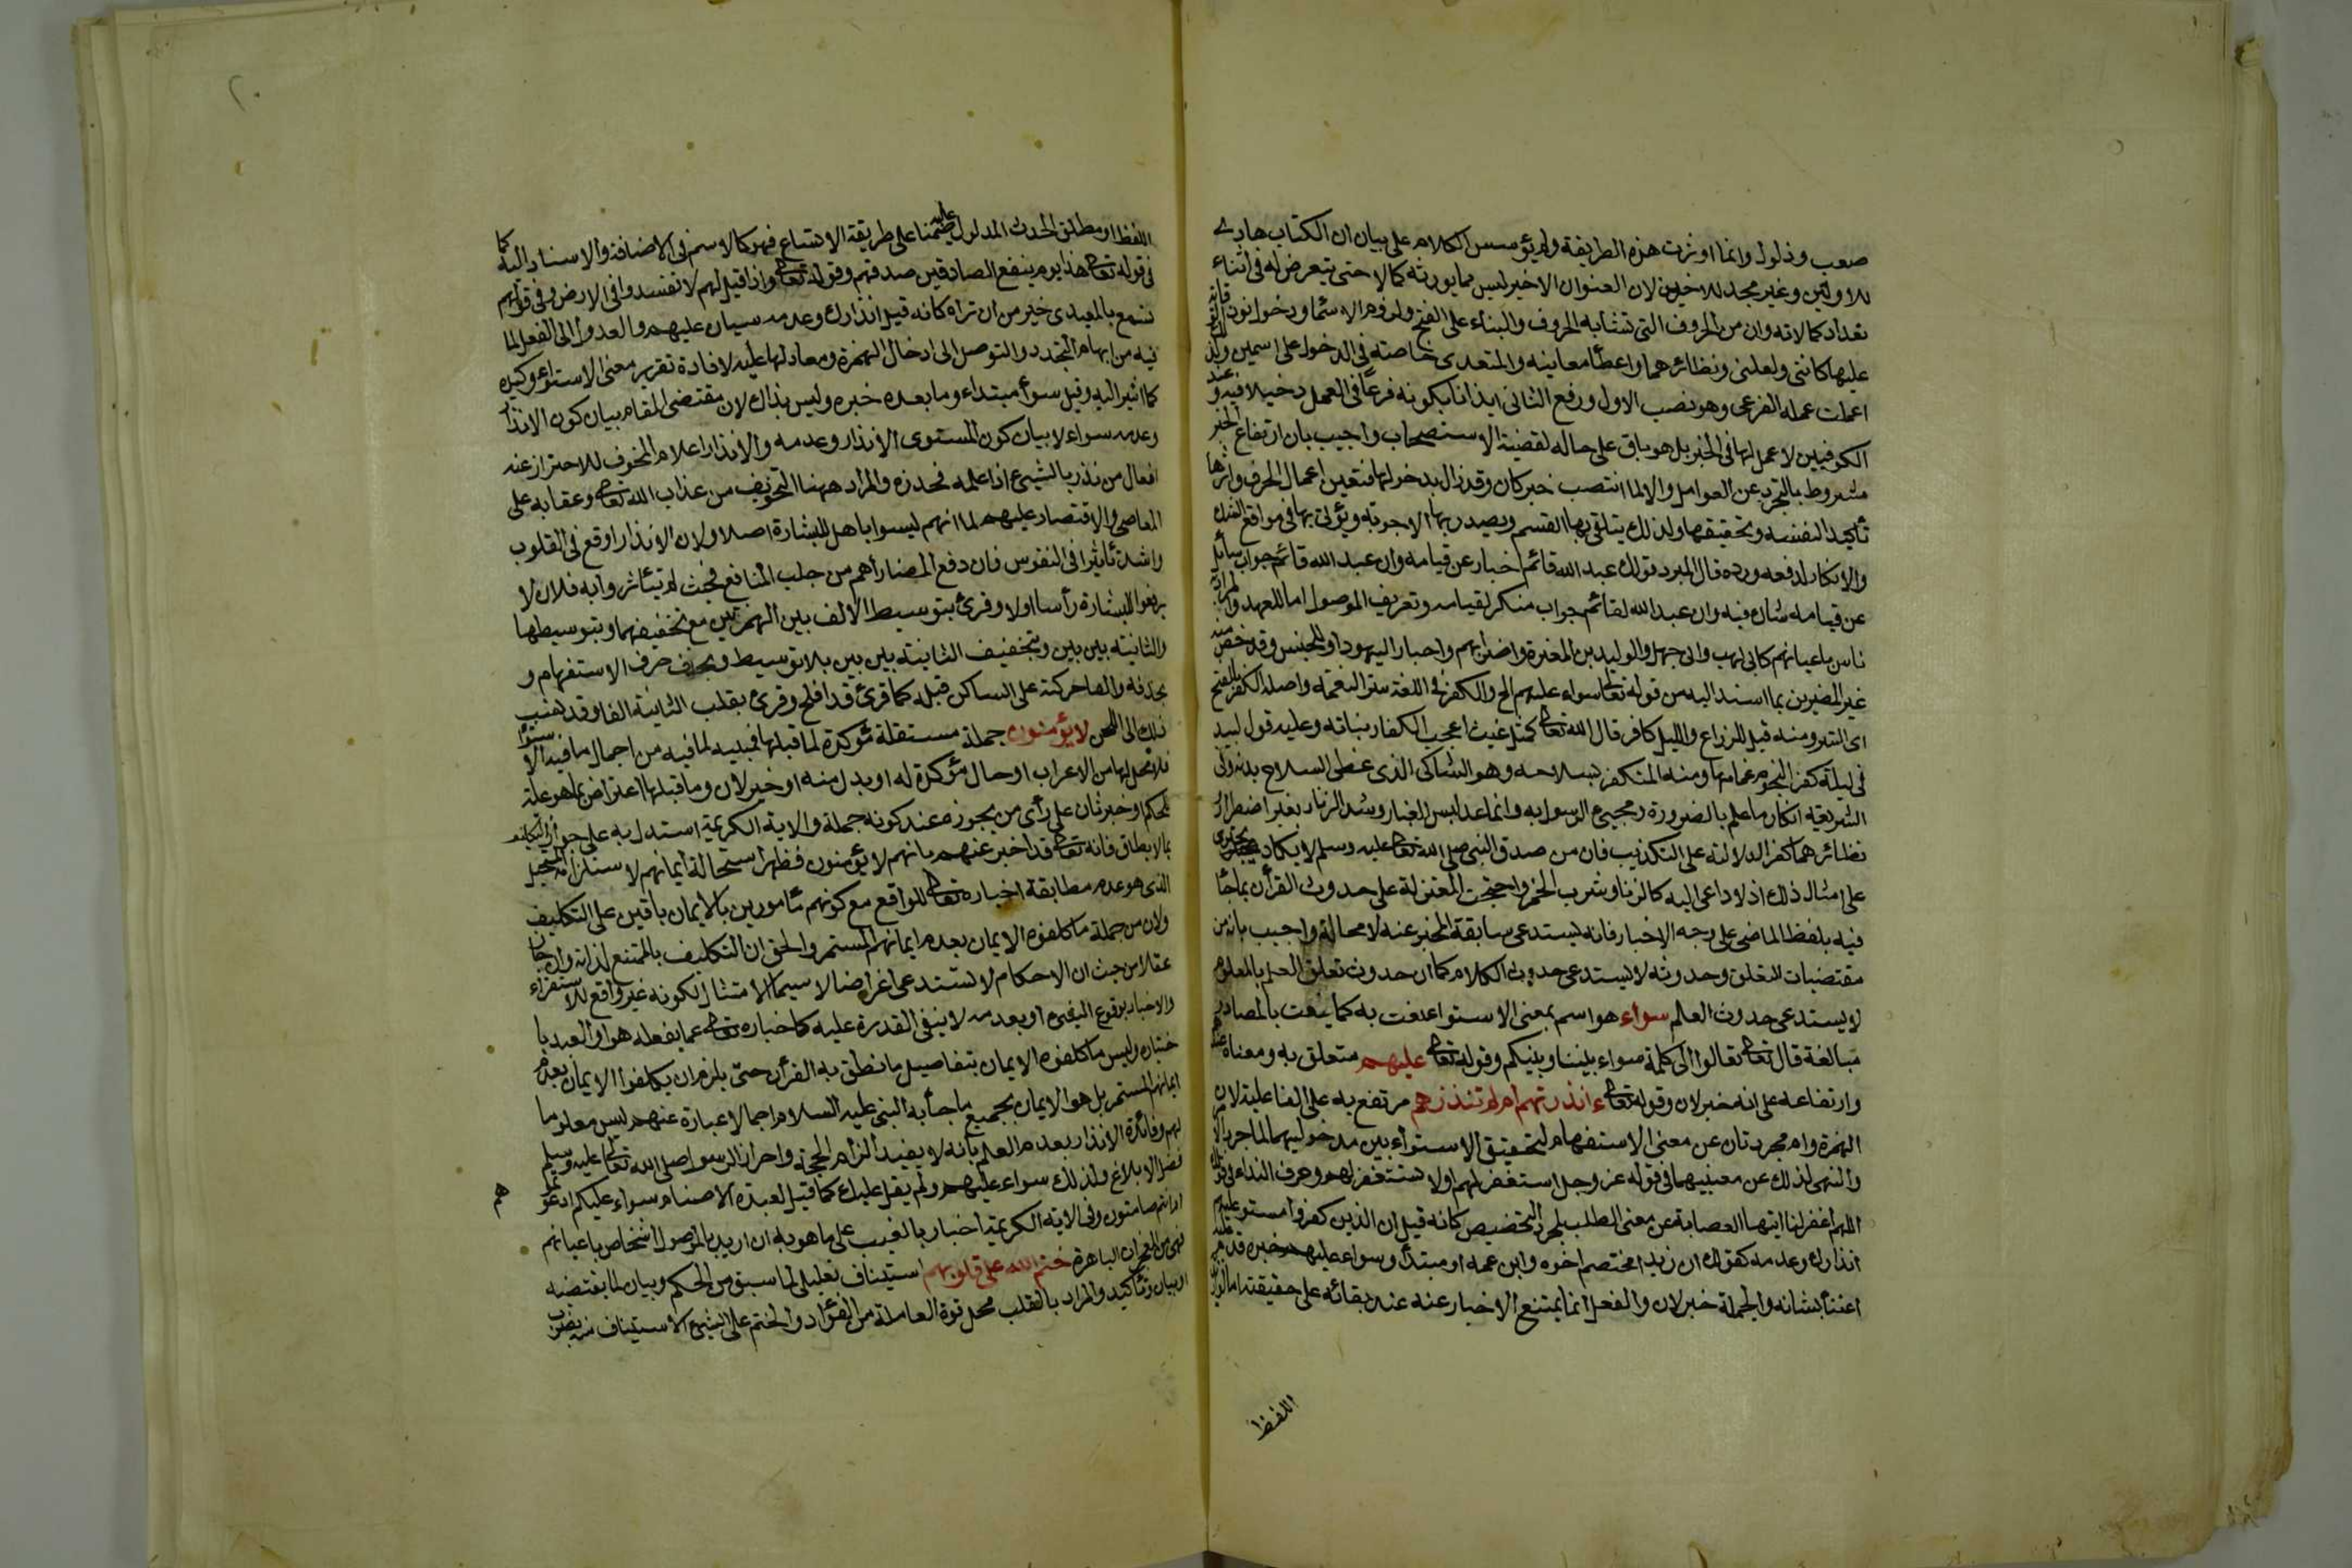 صعب وذلول وانما اوثرت هذه الطريقة ولم يؤسس الكلام على بيان ان الكتاب هاد
للاولين وغير مجد للاخرين لان العنوان الاخير ليس مما يورثه كمالا حتى يتعرض له في اثناء
تعداد كمالاته وان من الحروف التي تشابه الحروف والبناء على الفتح ولزوم الاسماء ودخول نون
عليها كانني ولعلني ونظائرهما واعطاء معانيه والمتعدى خاصة في الدخول على اسمين ولذ
اعملت عمله الفرعى وهو نصب الاول ورفع الثانى ايذانا بكونه فرعا في العمل دخيلا فيه وعند
الكوفيين لا عمل لها في الخبر بل هو باق على حاله لقضية الاستصحاب واجيب بان ارتفاع الخبر
مشروط بالتجرد عن العوامل والا لما انتصب خبر كان وقد زال بدخولها فتعين اعمال الحرف واثرها
تأكيد النسبة وتحقيقها ولذلك يتلقى بها القسم ويصدر بها الاجوبة ويؤتى بها في مواقع الشك
والانكار لدفعه ورده قال المبرد قولك عبد الله قائم اخبار عن قيامه وان عبد الله قائم جواب سائل
عن قيامه شان فيه وان عبد الله لقائم جواب منكر لقيامه وتعريف الموصول اما للعهد والمراد
ناس باعيانهم كابى لهب وابى جهل والوليد بن المغيرة واضرابهم واحبار اليهود او للجنس وقد خص منه
غير المصرين بما اسند اليه من قوله تعالى سواء عليهم الخ والكفر في اللغة ستر النعمة واصله الكفر بالفتح
اى الستر ومنه قيل للزراع والليل كافر قال الله تعالى كمثل غيث اعجب الكفار نباته وعليه قول لبيد
في ليلة كفر النجوم غمامها ومنه المتكفر بسلاحه وهو الشاكى الذى غطى السلاح بدنه وفى
الشريعة انكار ما علم بالضرورة مجيئ الرسول به وانما عد لبس الغيار وشد الزنار بغير اضطرار
نظائرهما كفرا لدلالته على التكذيب فان من صدق النبى صلى الله تعالى عليه وسلم لا يكاد يجترى
على امثال ذلك اذ لا داعى اليه كالزنا وشرب الخمر واحتجت المعتزلة على حدوث القرآن بما جاء
فيه بلفظ الماضى على وجه الاخبار فانه يستدعى سابقة المخبر عنه لا محالة واجيب بانه من
مقتضيات التعلق وحدوثه لا يستدعى حدوث الكلام كما ان حدوث تعلق العلم بالمعلوم
لا يستدعى حدوث العلم سواء هو اسم بمعنى الاستواء نعت به كما ينعت بالمصادر
مبالغة قال تعالى تعالوا الى كلمة سواء بيننا وبينكم وقوله تعالى عليهم متعلق به ومعناه عندهم
وارتفاعه على انه خبر لان وقوله تعالى ءانذرتهم ام لم تنذرهم مرتفع به على الفاعلية لان
الهمزة وام مجردتان عن معنى الاستفهام لتحقيق الاستواء بين مدخوليهما كما جرد الامر
والنهى لذلك عن معنييهما في قوله عز وجل استغفر لهم اولا تستغفر لهم وحرف النداء في قولك
اللهم اغفر لنا ايتها العصابة عن معنى الطلب لمجرد التخصيص كانه قيل ان الذين كفروا مستو عليهم
انذارك وعدمه كقولك ان زيدا مختصم اخوه وابن عمه او مبتدأ وسواء عليهم خبره قدم عليه
اعتناء بشانه والجملة خبر لان والفعل انما يمتنع الاخبار عنه عند بقائه على حقيقته اما لو اريد
اللفظ
٢٠
اللفظ او مطلق الحدث المدلول عليه ضمنا على طريقة الاتساع فهو كالاسم في الاضافة والاسناد اليه كما
في قوله تعالى هذا يوم ينفع الصادقين صدقهم وقوله تعالى واذا قيل لهم لا تفسدوا في الارض وفي قولهم
تسمع بالمعيدى خير من ان تراه كانه قيل انذارك وعدمه سيان عليهم والعدول الى الفعل لما
فيه من ايهام التجدد والتوصل الى ادخال الهمزة ومعادلها عليه لافادة تقرير معنى الاستواء وتأكيده
كما اشير اليه وقيل سواء مبتداء وما بعده خبره وليس بذاك لان مقتضى المقام بيان كون الانذار
وعدمه سواء لا بيان كون المستوى الانذار وعدمه والانذار اعلام المخوف للاحتراز عنه
افعال من نذر بالشيئ اذا علمه فحذره والمراد ههنا التخويف من عذاب الله تعالى وعقابه على
المعاصى والاقتصار عليهم لما انهم ليسوا باهل للبشارة اصلا ولان الانذار اوقع في القلوب
واشد تأثيرا في النفوس فان دفع المضار أهم من جلب المنافع فحيث لم يتأثروا به فلان لا
يرفعوا للبشارة رأسا اولى وقرئ بتوسيط الالف بين الهمزتين مع تخفيفهما وبتوسيطها
والثانية بين بين وبتخفيف الثانية بين بين بلا توسيط وبحذف حرف الاستفهام و
بحذفه والقاء حركته على الساكن قبله كما قرئ قد افلح وقرئ بقلب الثانية الفا وقد نسب
ذلك الى اللحن لا يؤمنون جملة مستقلة مؤكدة لما قبلها مبينة لما فيه من اجمال ما فيه الاستواء
فلا محل لها من الاعراب او حال مؤكدة له او بدل منه او خبر لان وما قبلها اعتراض بما هو علة
للحكم او خبر ثان على رأى من يجوزه عند كونه جملة والاية الكريمة استدل به على جواز التكليف
بما لا يطاق فانه تعالى قد اخبر عنهم بانهم لا يؤمنون فظهر استحالة ايمانهم لاستلزامه المستحيل
الذى هو عدم مطابقة اخباره تعالى للواقع مع كونهم مأمورين بالايمان باقين على التكليف
ولان من جملة ما كلفوه الايمان بعدم ايمانهم المستمر والحق ان التكليف بالممتنع لذاته وان جاز
عقلا من حيث ان الاحكام لا تستدعى اغراضا لا سيما الامتثال لكونه غير واقع للاستقراء
والاخبار بوقوع الشيء او بعدمه لا ينفى القدرة عليه كاخباره تعالى عما يفعله هو او العبد با
ختياره وليس ما كلفوه الايمان بتفاصيل ما نطق به القرآن حتى يلزم ان يكلفوا الايمان بعدم
ايمانهم المستمر بل هو الايمان بجميع ما جاء به النبى عليه السلام اجمالا عبارة عنهم ليس معلوما
لهم وفائدة الانذار بعد العلم بانه لا يفيد الزام الحجة واحراز الرسول صلى الله تعالى عليه وسلم
فضل الابلاغ ولذلك سواء عليهم ولم يقل عليك كما قيل لعبدة الاصنام سواء عليكم ادعوتمو
هم
ام انتم صامتون وفى الاية الكريمة اخبار بالغيب على ما هو به ان اريد بالموصول اشخاص باعيانهم
فهى من المعجزات الباهرة ختم الله على قلوبهم استيناف تعليلى لما سبق من الحكم وبيان لما يقتضيه
او بيان وتأكيد والمراد بالقلب محل قوة العاملة من الفؤاد والختم على الشيئ الاستيثاق منه بضرب